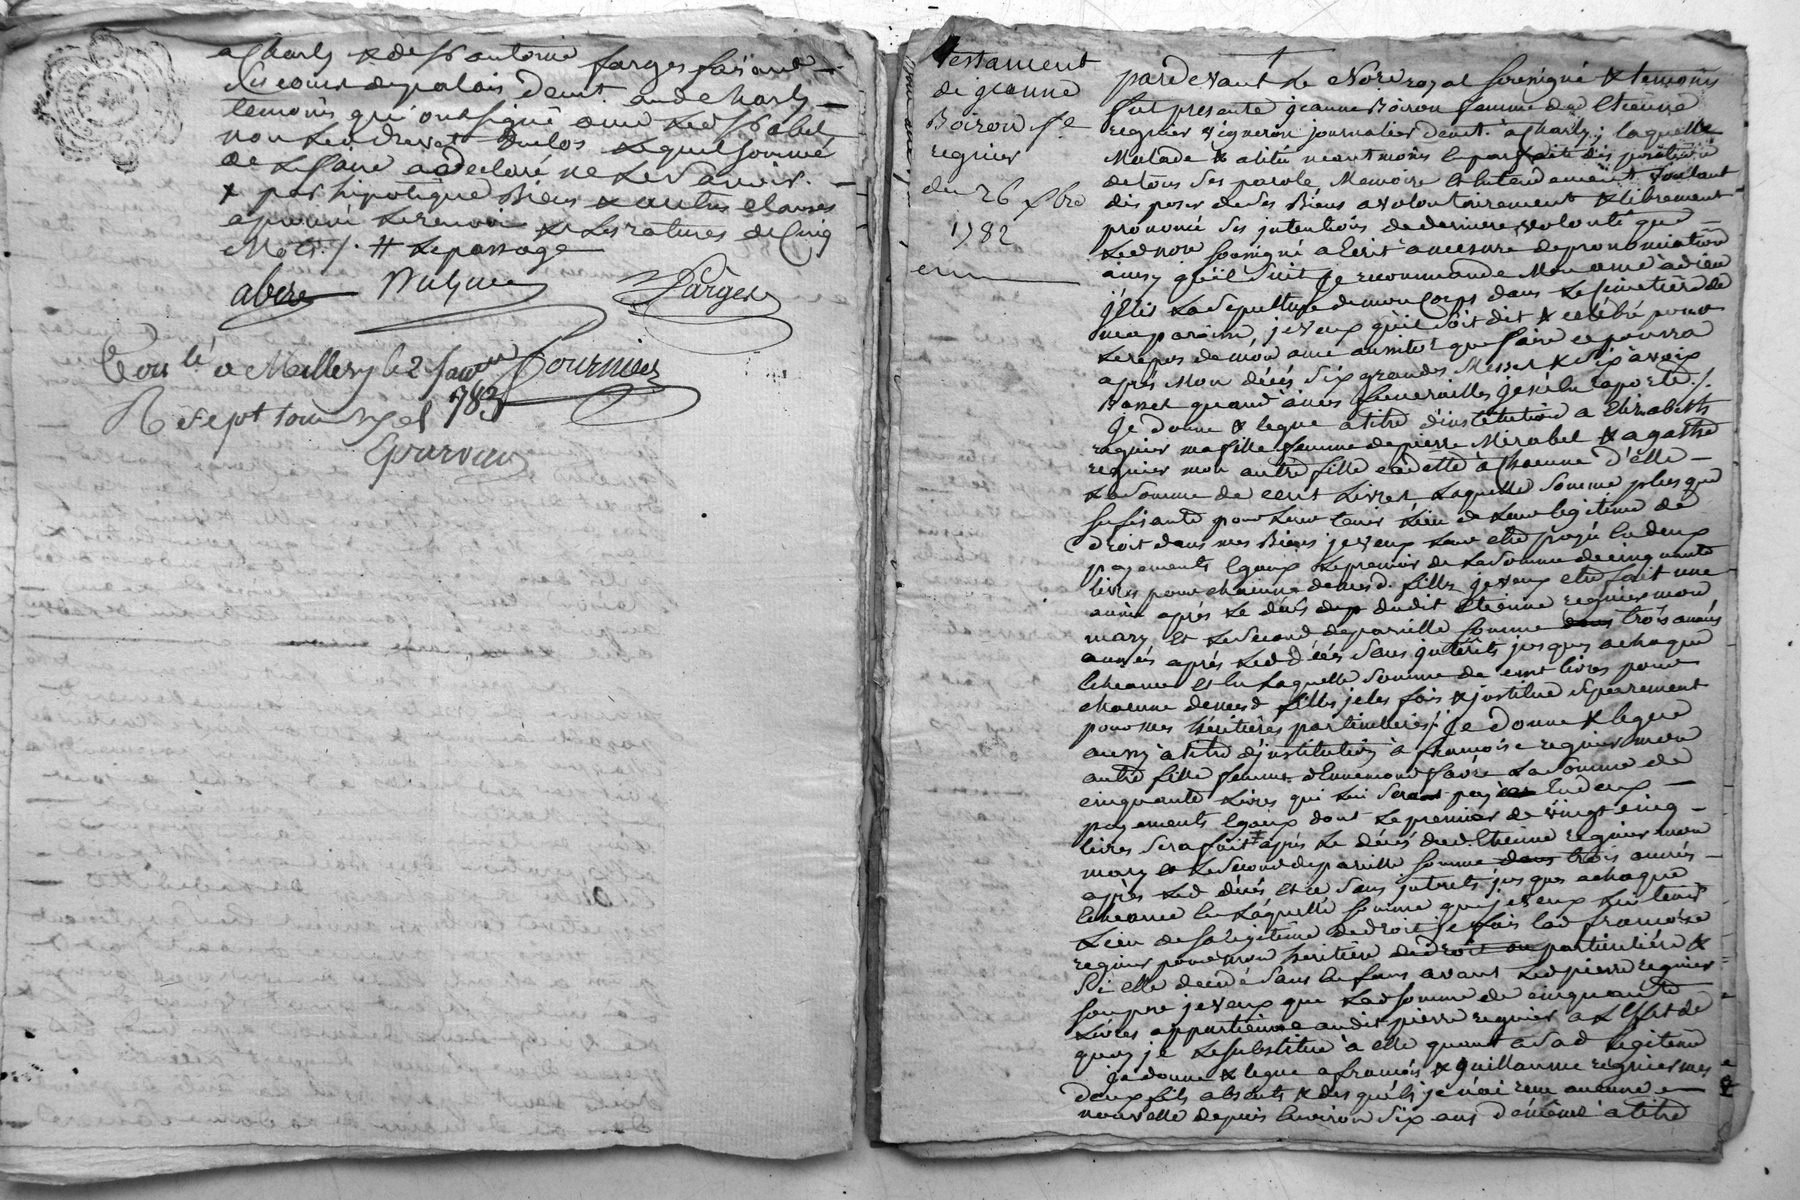 a Charly & de Sr antoine farges faisant
du palais demt. aud Charly
temoins qui ont signé avec led Sr abel
non led drevet duclos lequel sommé
de le faire a declaré ne le savoir.
& par hipotique Biens & autres clauses
aprouvé le renvoi & les ratures de Cinq
Mots ./. # le passage
abel farges
Con lé a Millery le 2 janvr
1783 fournier
R sept sous
testament
de jeanne
Boiron fe
regnier
du 26 xbre
1782
pardevant Le Nore royal soussigné & temoins
fut presante jeanne Boiron femme de etienne
regnier vigneron journalier demt. a Charly, laquelle
Malade & alitée neantmoins en parfaite disposition
de tous ses parole, Memoire & entendement voulant
disposer de ses Biens a volontairement & librement
prononcé ses intentions de derniere volonté que
Led nore soussigné a ecrit a mesure de prononciation
ainsy qu'il suit Je recommande Mon ame a dieu
j'élis La sepulture de mon Corps dans Le Cimetiere de
ma paroisse, je veux qu'il soit dit & celébré pour
Le repos de mon ame aussitot que faire ce pourra
après Mon décés Six grandes Messes & dix a voix
Basse quand a mes funerailles je m'en raporte ./.
Je donne & legue a titre d'institution a Elizabeth
regnier ma fille femme de pierre Mirabel & a agathe
regnier mon autre fille cadette a Chacune d'elle
La somme de cent Livres Laquelle somme plus que
sufisante pour Leur tenir Lieu de Leur legitime de
droit dans mes Biens je veux Leur etre payé en deux
payements egaux Le premier de La somme de cinquante
livres pour chacune de mesd. filles je veux etre fait une
année après Le décés dudit etienne regnier mon
mary et Le second de pareille somme trois années
après Led décés Sans interêts jusques a chaque
Echeance et en Laquelle Somme de cent livres pour
chacune de mesd filles je les fais & institue expressement
pour mes héritières particulieres ./. Je donne & legue
aussy a titre d'institution a françoise regnier mon
autre fille femme d'Ennemond favre La somme de
cinquante Livres qui lui sera payée en deux
payements egaux dont Le premier de vingt cinq
livres Sera fait # après Le décés dud. Etienne regnier mon
mary et Le second de pareille somme trois années
après Led décés et ce Sans interets jusques a chaque
Echeance en Laquelle Somme que je veux Lui tenir
Lieu de sa legitime de droit je fais lad françoise
regnier pour mon héritière de droit ou particulière &
Si elle decede Sans enfans avant Led pierre regnier
Son pere je veux que Lad somme de cinquante
Livres appartienne audit pierre regnier a L'effet de
quoy je Le substitue a elle quant a Sad legitime
Je donne & legue a françois & guillaume regnier mes
deux fils absents & desquels je n'ai reçu aucune
nouvelle depuis Environ Six ans de même a titre